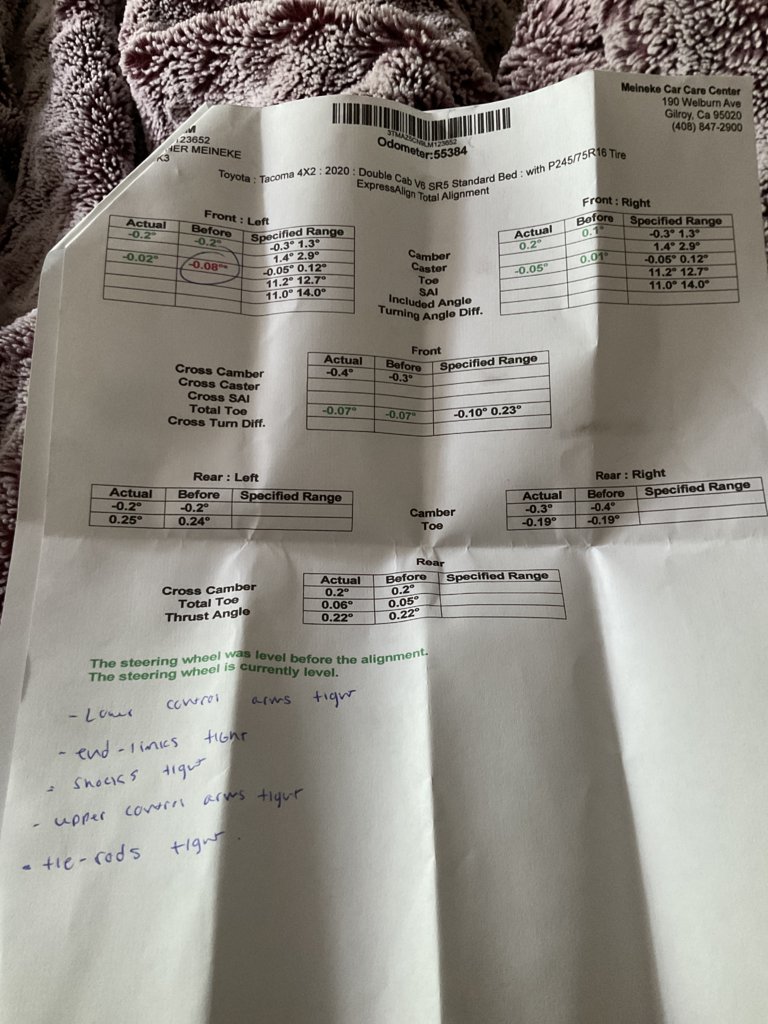 Meineke Car Care Center
190 Welburn Ave
Gilroy, Ca 95020
(408) 847-2900
M
123652
HER MEINEKE
K3
3TMAZ5CN9LM123652
Odometer:55384
Toyota : Tacoma 4X2 : 2020 : Double Cab V6 SR5 Standard Bed : with P245/75R16 Tire
ExpressAlign Total Alignment
Front : Left
Actual Before Specified Range
-0.2° -0.2° -0.3° 1.3°
1.4° 2.9°
-0.02° -0.08° -0.05° 0.12°
11.2° 12.7°
11.0° 14.0°
Camber
Caster
Toe
SAI
Included Angle
Turning Angle Diff.
Front : Right
Actual Before Specified Range
0.2° 0.1° -0.3° 1.3°
1.4° 2.9°
-0.05° 0.01° -0.05° 0.12°
11.2° 12.7°
11.0° 14.0°
Front
Actual Before Specified Range
Cross Camber -0.4° -0.3°
Cross Caster
Cross SAI
Total Toe -0.07° -0.07° -0.10° 0.23°
Cross Turn Diff.
Rear : Left
Actual Before Specified Range
-0.2° -0.2°
0.25° 0.24°
Camber
Toe
Rear : Right
Actual Before Specified Range
-0.3° -0.4°
-0.19° -0.19°
Rear
Actual Before Specified Range
Cross Camber 0.2° 0.2°
Total Toe 0.06° 0.05°
Thrust Angle 0.22° 0.22°
The steering wheel was level before the alignment.
The steering wheel is currently level.
- Lower control arms tight
- end-links tight
- shocks tight
- upper control arms tight
- tie-rods tight.